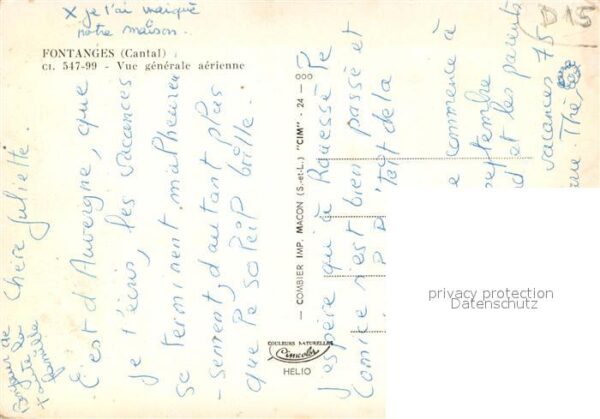 x je l'ai marqué
notre maison.
D15
FONTANGES (Cantal)
CI. 547-99 - Vue générale aérienne
Chère Juliette.
C'est d'Auvergne, que
je t'écris, les vacances
se terminent malheureu
-sement, d'autant plus
que le soleil brille.
J'espère qu'à Rouessé le
Comice s'est bien passé et
commence à
septembre
et les parents
vacances 75
Bonjour de
toute la
famille
— COMBIER IMP. MACON (S.-et-L.) "CIM" - 24 - 000
COULEURS NATURELLES
Cimcolor
HELIO
privacy protection
Datenschutz